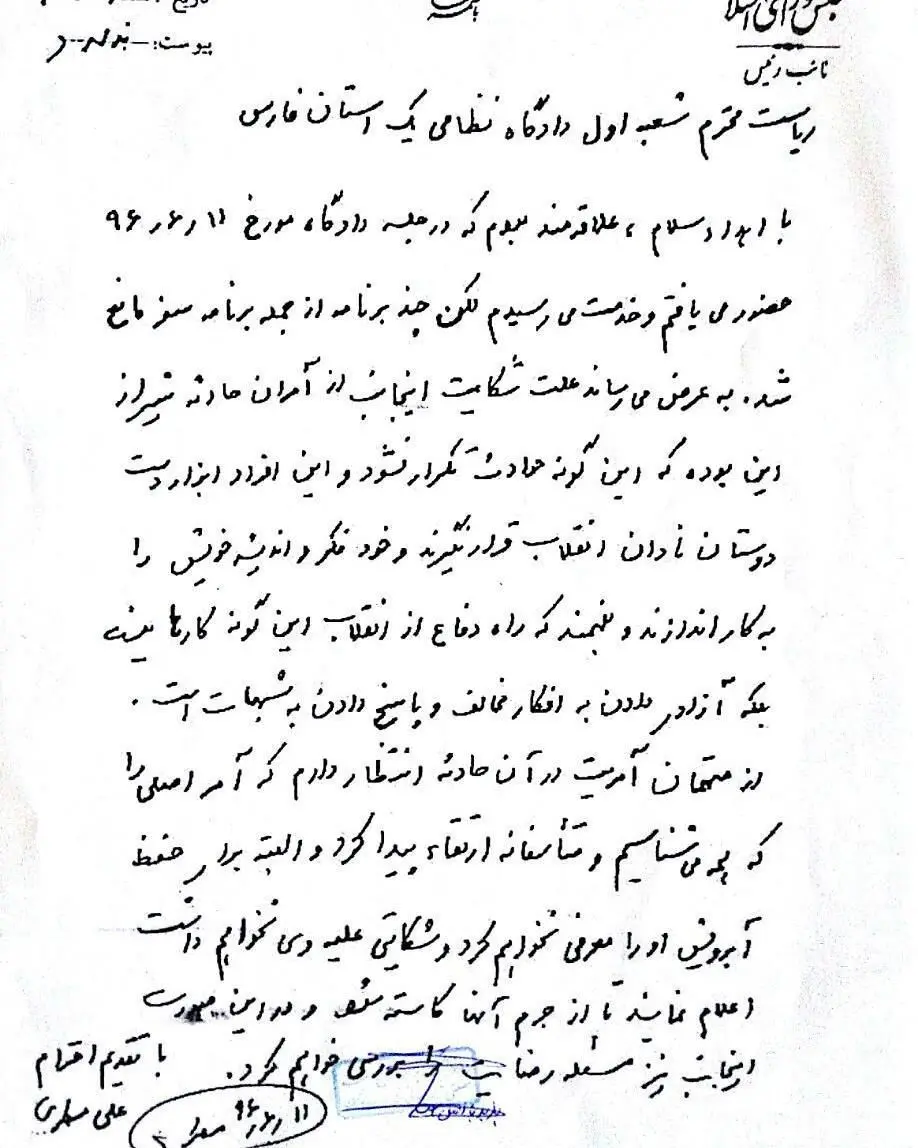 مجلس شورای اسلامی
نائب رئیس
تاریخ:
پیوست: ندارد
ریاست محترم شعبه اول دادگاه نظامی یک استان فارس
با اهداء سلام، علاقمند بودم که در جلسه دادگاه مورخ ۹۶/۶/۱۱
حضور می یافتم و خدمت می رسیدم لکن چند برنامه از جمله برنامه سفر مانع
شد. به عرض می رساند علت شکایت اینجانب از آمران حادثه شیراز
این بوده که این گونه حوادث تکرار نشود و این افراد ابزار دست
دوستان نادان انقلاب قرار نگیرند و خود فکر و اندیشه خویش را
به کار اندازند و بفهمند که راه دفاع از انقلاب این گونه کارها نیست
بلکه آزادی دادن به افکار مخالف و پاسخ دادن به شبهات است.
از متهمان آمریت در آن حادثه انتظار دارم که آمر اصلی را
که همه می شناسیم و متأسفانه ارتقاء پیدا کرد و البته برای حفظ
آبرویش او را معرفی نخواهم کرد و شکایتی علیه وی نخواهم داشت
اعلام نمایند تا از جرم آنها کاسته شود و در این صورت
اینجانب نیز مسئله رضایت را بررسی خواهم کرد.
با تقدیم احترام
علی مطهری
۹۶/۶/۱۱